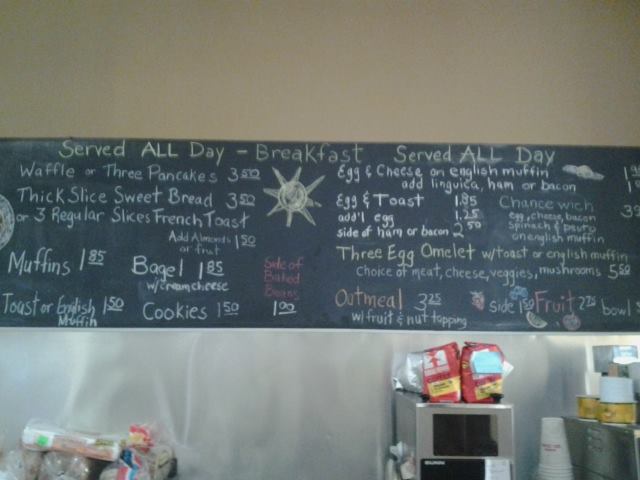 Served ALL Day - Breakfast Served ALL Day
Waffle or Three Pancakes 3.50
Thick Slice Sweet Bread 3.50
or 3 Regular Slices French Toast
Add Almonds 1.50
or fruit
Muffins 1.85
Bagel 1.85
w/creamcheese
Toast or English 1.50
Muffin
Cookies 1.50
Side of
Baked
Beans
1.00
Egg & Cheese on english muffin
add linguica, ham or bacon
Egg & Toast 1.95
add'l egg 1.25
side of ham or bacon 2.50
Chance wich
egg, cheese, bacon
spinach & pesto
on english muffin
Three Egg Omelet w/toast or english muffin
choice of meat, cheese, veggies, mushrooms 5.50
Oatmeal 3.25
w/fruit & nut topping
side 1.50 Fruit 2.75 bowl
BUNN